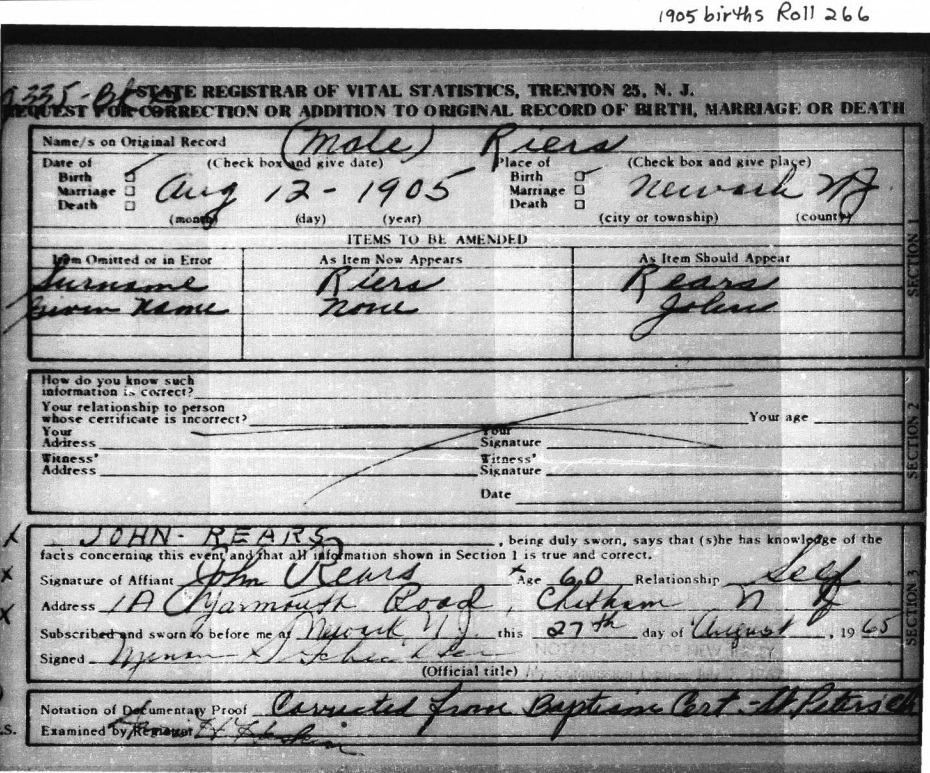 1905 births Roll 266
STATE REGISTRAR OF VITAL STATISTICS, TRENTON 25, N. J.
REQUEST FOR CORRECTION OR ADDITION TO ORIGINAL RECORD OF BIRTH, MARRIAGE OR DEATH
Name/s on Original Record (Male) Riers
Date of (Check box and give date) Place of (Check box and give place)
Birth Birth
Marriage Aug 12 - 1905 Marriage Newark NJ.
Death Death
(month) (day) (year) (city or township) (county)
SECTION 1
ITEMS TO BE AMENDED
Item Omitted or in Error As Item Now Appears As Item Should Appear
Surname Riers Rears
Given Name None John
How do you know such
information is correct?
Your relationship to person
whose certificate is incorrect? Your age
Your Your
Address Signature
Witness' Witness'
Address Signature
Date
SECTION 2
X JOHN - REARS, being duly sworn, says that (s)he has knowledge of the
facts concerning this event and that all information shown in Section 1 is true and correct.
X Signature of Affiant John Rears X Age 60 Relationship Self
X Address 1A Yarmouth Road, Chatham N J
Subscribed and sworn to before me at Newark, N.J. this 27th day of August, 1965
Signed
(Official title)
SECTION 3
Notation of Documentary Proof Corrected from Baptism Cert - St. Peters Ch
Examined by Registrar